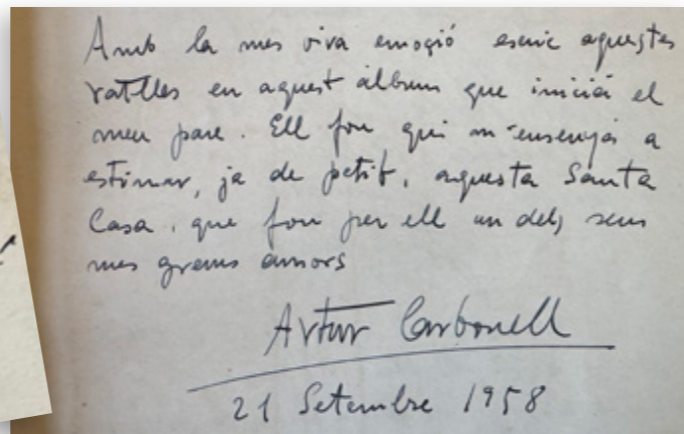 Amb la mes viva emoció escric aquestes
ratlles en aquest àlbum que inicià el
meu pare. Ell fou qui m'ensenyà a
estimar, ja de petit, aquesta Santa
Casa, que fou per ell un dels seus
mes grans amors
Artur Carbonell
21 Setembre 1958